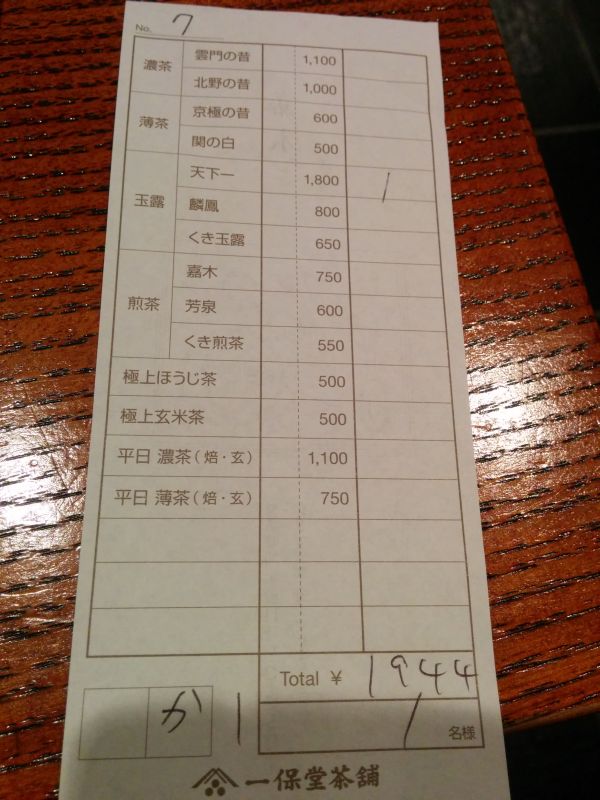 No. 7
濃茶 雲門の昔 1,100
北野の昔 1,000
薄茶 京極の昔 600
関の白 500
玉露 天下一 1,800 1
麟鳳 800
くき玉露 650
煎茶 嘉木 750
芳泉 600
くき煎茶 550
極上ほうじ茶 500
極上玄米茶 500
平日 濃茶(焙・玄) 1,100
平日 薄茶(焙・玄) 750
Total ¥ 1944
か 1 1 名様
一保堂茶舗